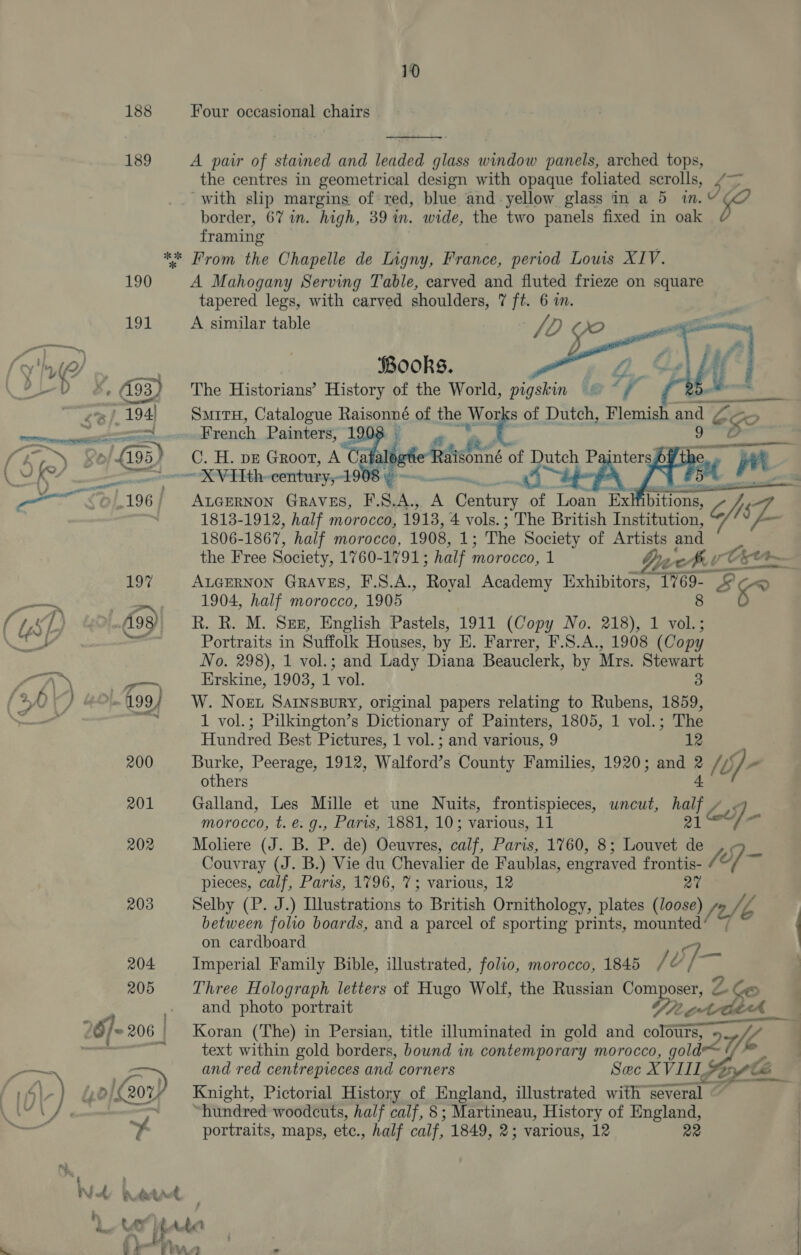 10
188 Four occasional chairs
189 A pair of stained and leaded glass window panels, arched tops,
the centres in geometrical design with opaque foliated scrolls,
with slip margins of red, blue and yellow glass in a 5 in.
border, 67 in. high, 39 in. wide, the two panels fixed in oak
framing
*** From the Chapelle de Ligny, France, period Louis XIV.
190 A Mahogany Serving Table, carved and fluted frieze on square
tapered legs, with carved shoulders, 7 ft. 6 in.
191 A similar table
Books.
193 The Historians' History of the World, pigskin 25
194 Smith, Catalogue Raisonné of the Works of Dutch, Flemish and
French Painters, 1908 9
195 C. H. de Groot, A Catalogue Raisonné of Dutch Painters of the
XVIIth century, 1908
196 Algernon Graves, F.S.A., A Century of Loan Exhibitions,
1813-1912, half morocco, 1913, 4 vols.; The British Institution,
1806-1867, half morocco, 1908, 1; The Society of Artists and
the Free Society, 1760-1791; half morocco, 1
197 Algernon Graves, F.S.A., Royal Academy Exhibitors, 1769-
1904, half morocco, 1905 8
198 R. R. M. See, English Pastels, 1911 (Copy No. 218), 1 vol.;
Portraits in Suffolk Houses, by E. Farrer, F.S.A., 1908 (Copy
No. 298), 1 vol.; and Lady Diana Beauclerk, by Mrs. Stewart
Erskine, 1903, 1 vol. 3
199 W. Noel Sainsbury, original papers relating to Rubens, 1859,
1 vol.; Pilkington's Dictionary of Painters, 1805, 1 vol.; The
Hundred Best Pictures, 1 vol.; and various, 9 12
200 Burke, Peerage, 1912, Walford's County Families, 1920; and 2
others 4
201 Galland, Les Mille et une Nuits, frontispieces, uncut, half
morocco, t. e. g., Paris, 1881, 10; various, 11 21
202 Moliere (J. B. P. de) Oeuvres, calf, Paris, 1760, 8; Louvet de
Couvray (J. B.) Vie du Chevalier de Faublas, engraved frontis-
pieces, calf, Paris, 1796, 7; various, 12 27
203 Selby (P. J.) Illustrations to British Ornithology, plates (loose)
between folio boards, and a parcel of sporting prints, mounted
on cardboard
204 Imperial Family Bible, illustrated, folio, morocco, 1845
205 Three Holograph letters of Hugo Wolf, the Russian Composer,
and photo portrait
206 Koran (The) in Persian, title illuminated in gold and colours,
text within gold borders, bound in contemporary morocco, gold
and red centrepieces and corners Sæc XVIII
207 Knight, Pictorial History of England, illustrated with several
hundred woodcuts, half calf, 8; Martineau, History of England,
portraits, maps, etc., half calf, 1849, 2; various, 12 22